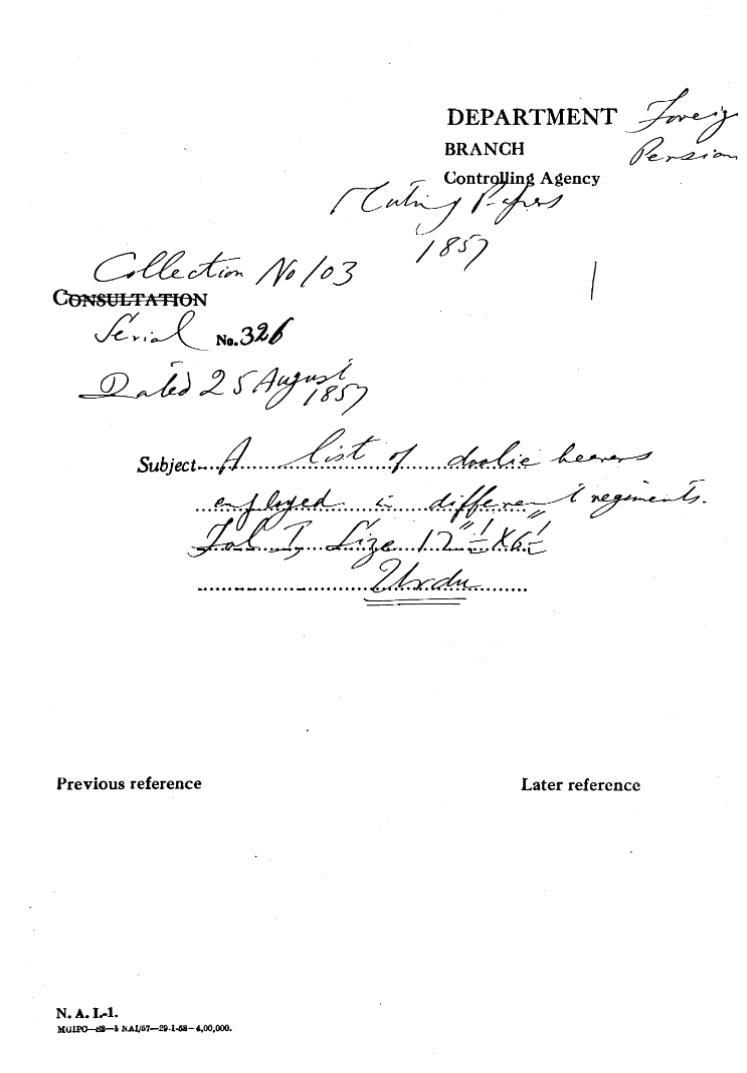 DEPARTMENT Foreig
BRANCH Persian
Controlling Agency
Mutiny Papers
1857
Collection No 103
CONSULTATION
Serial No. 326
Dated 25 August
1857
Subject A list of doolie bearers
employed in different regiments.
Fol 1 Size
Urdu
Previous reference Later reference
N. A. I.-1.
NAI/57—29-1-58—4,00,000.